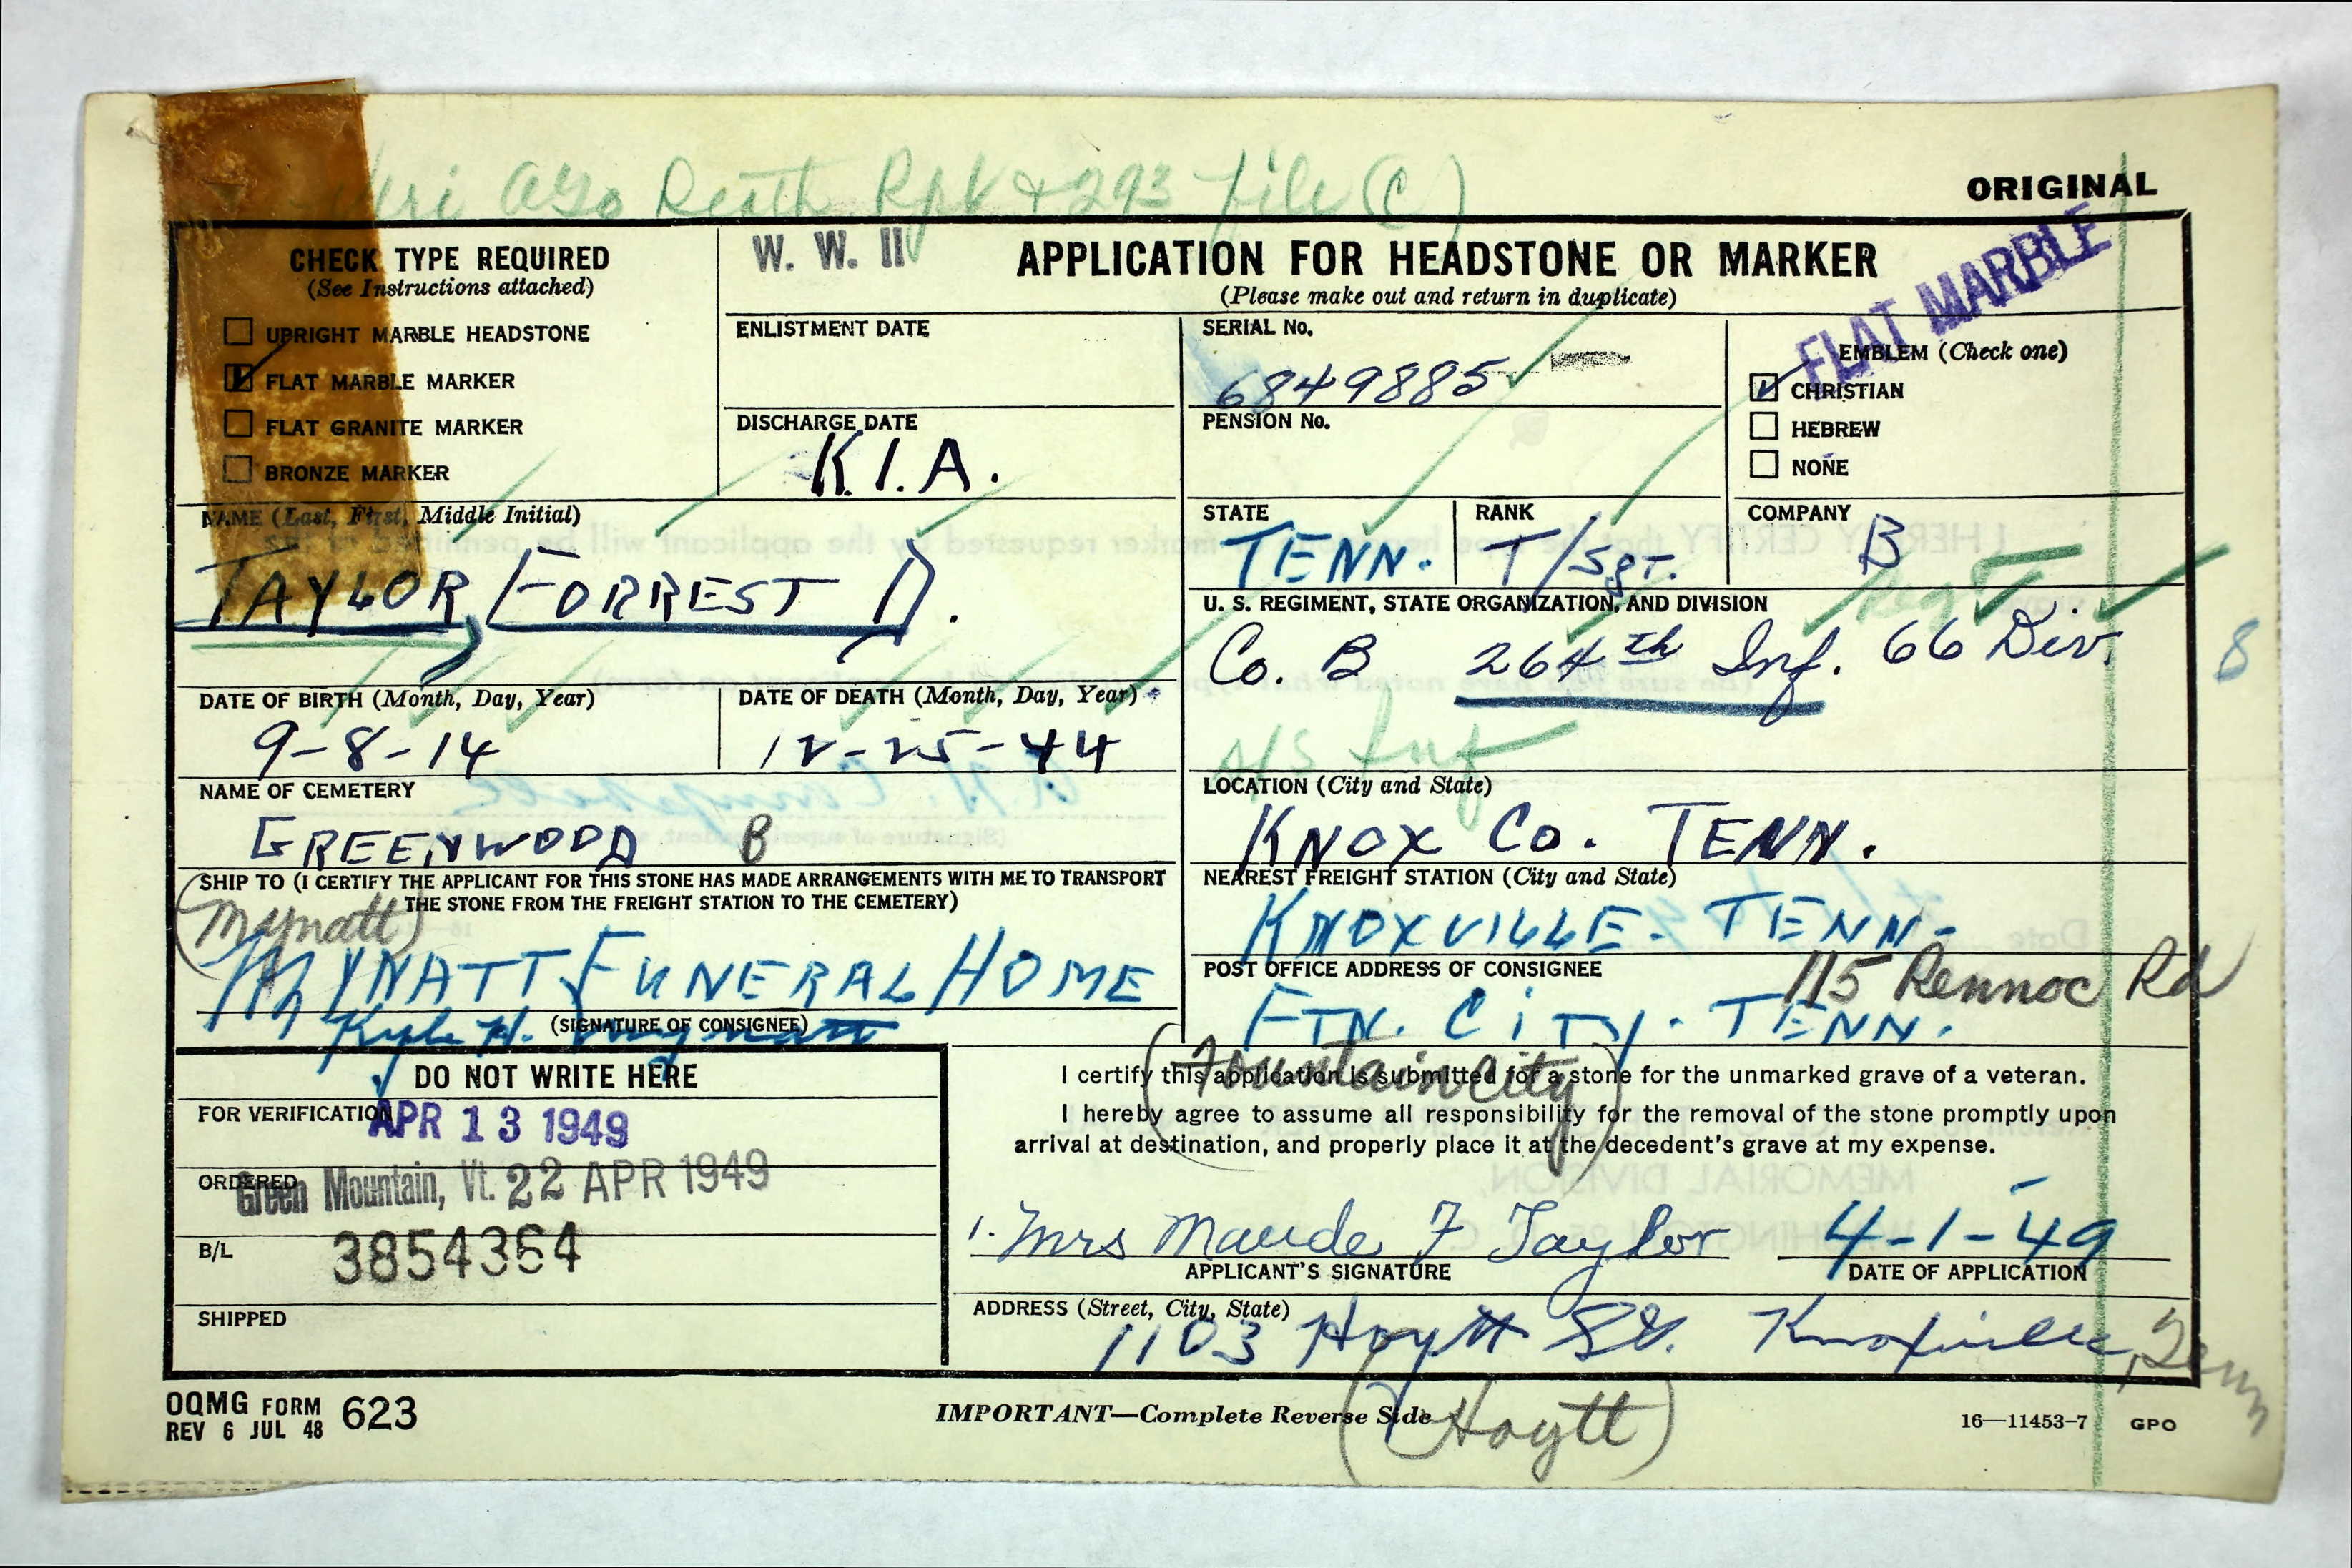 AGO Death Rpt & 293 file (C)
ORIGINAL
CHECK TYPE REQUIRED
(See Instructions attached)
UPRIGHT MARBLE HEADSTONE
FLAT MARBLE MARKER
FLAT GRANITE MARKER
BRONZE MARKER
W. W. II
APPLICATION FOR HEADSTONE OR MARKER
(Please make out and return in duplicate)
FLAT MARBLE
ENLISTMENT DATE
SERIAL No.
6849885
EMBLEM (Check one)
CHRISTIAN
HEBREW
NONE
DISCHARGE DATE
K.I.A.
PENSION No.
NAME (Last, First, Middle Initial)
TAYLOR, FORREST D.
STATE
TENN.
RANK
T/Sgt.
COMPANY
B
U. S. REGIMENT, STATE ORGANIZATION, AND DIVISION
Regt
Co. B 264th Inf. 66 Div.
8
A/S Inf
DATE OF BIRTH (Month, Day, Year)
9-8-14
DATE OF DEATH (Month, Day, Year)
12-25-44
NAME OF CEMETERY
GREENWOOD B
LOCATION (City and State)
KNOX Co. TENN.
SHIP TO (I CERTIFY THE APPLICANT FOR THIS STONE HAS MADE ARRANGEMENTS WITH ME TO TRANSPORT
THE STONE FROM THE FREIGHT STATION TO THE CEMETERY)
(Mynatt)
MYNATT FUNERAL HOME
Kyle H. Mynatt
(SIGNATURE OF CONSIGNEE)
NEAREST FREIGHT STATION (City and State)
KNOXVILLE. TENN.
POST OFFICE ADDRESS OF CONSIGNEE
115 Rennoc Rd
FTN. CITY. TENN.
(Fountain City)
DO NOT WRITE HERE
FOR VERIFICATION
APR 13 1949
ORDERED
Green Mountain, Vt. 22 APR 1949
B/L
3854364
SHIPPED
I certify this application is submitted for a stone for the unmarked grave of a veteran.
I hereby agree to assume all responsibility for the removal of the stone promptly upon
arrival at destination, and properly place it at the decedent's grave at my expense.
1. Mrs Maude F Taylor
APPLICANT'S SIGNATURE
4-1-49
DATE OF APPLICATION
ADDRESS (Street, City, State)
1103 Hoytt St. Knoxville, Tenn
(Hoytt)
OQMG FORM 623
REV 6 JUL 48
IMPORTANT—Complete Reverse Side
16—11453-7 GPO